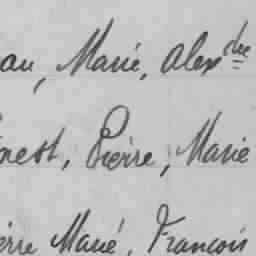 au, Marié, Alexdre
nest, Pierre, Marie
erre Marié, François